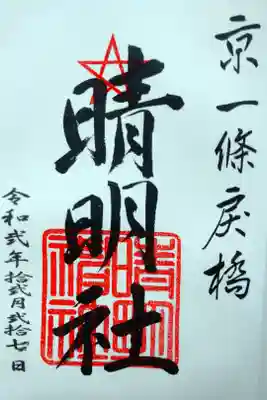 京一條戻橋
晴明社
令和弐年拾弐月弐拾七日